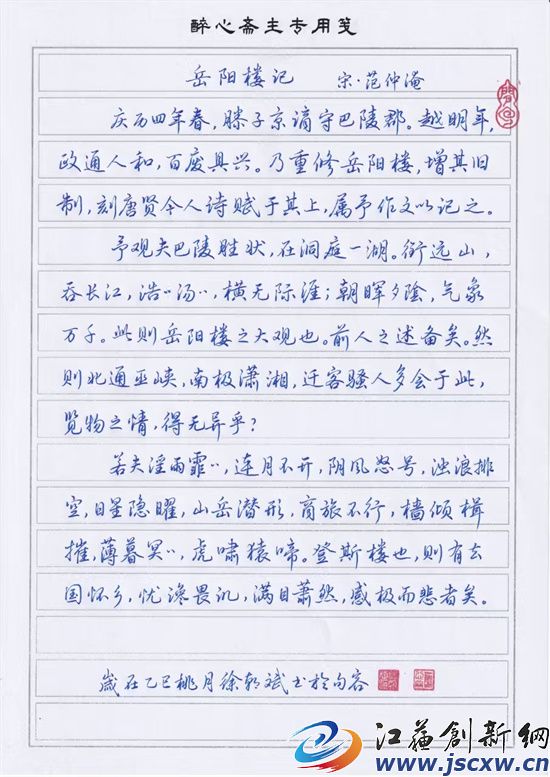 醉心斋主专用笺
岳阳楼记 宋·范仲淹
庆历四年春，滕子京谪守巴陵郡。越明年，
政通人和，百废具兴。乃重修岳阳楼，增其旧
制，刻唐贤今人诗赋于其上，属予作文以记之。
予观夫巴陵胜状，在洞庭一湖。衔远山，
吞长江，浩〃汤〃，横无际涯；朝晖夕阴，气象
万千。此则岳阳楼之大观也。前人之述备矣。然
则北通巫峡，南极潇湘，迁客骚人多会于此，
览物之情，得无异乎？
若夫淫雨霏〃，连月不开，阴风怒号，浊浪排
空，日星隐曜，山岳潜形，商旅不行，樯倾楫
摧，薄暮冥〃，虎啸猿啼。登斯楼也，则有去
国怀乡，忧谗畏讥，满目萧然，感极而悲者矣。
岁在乙巳桃月徐郭斌书于句容
江苏创新网
www.jscxw.cn